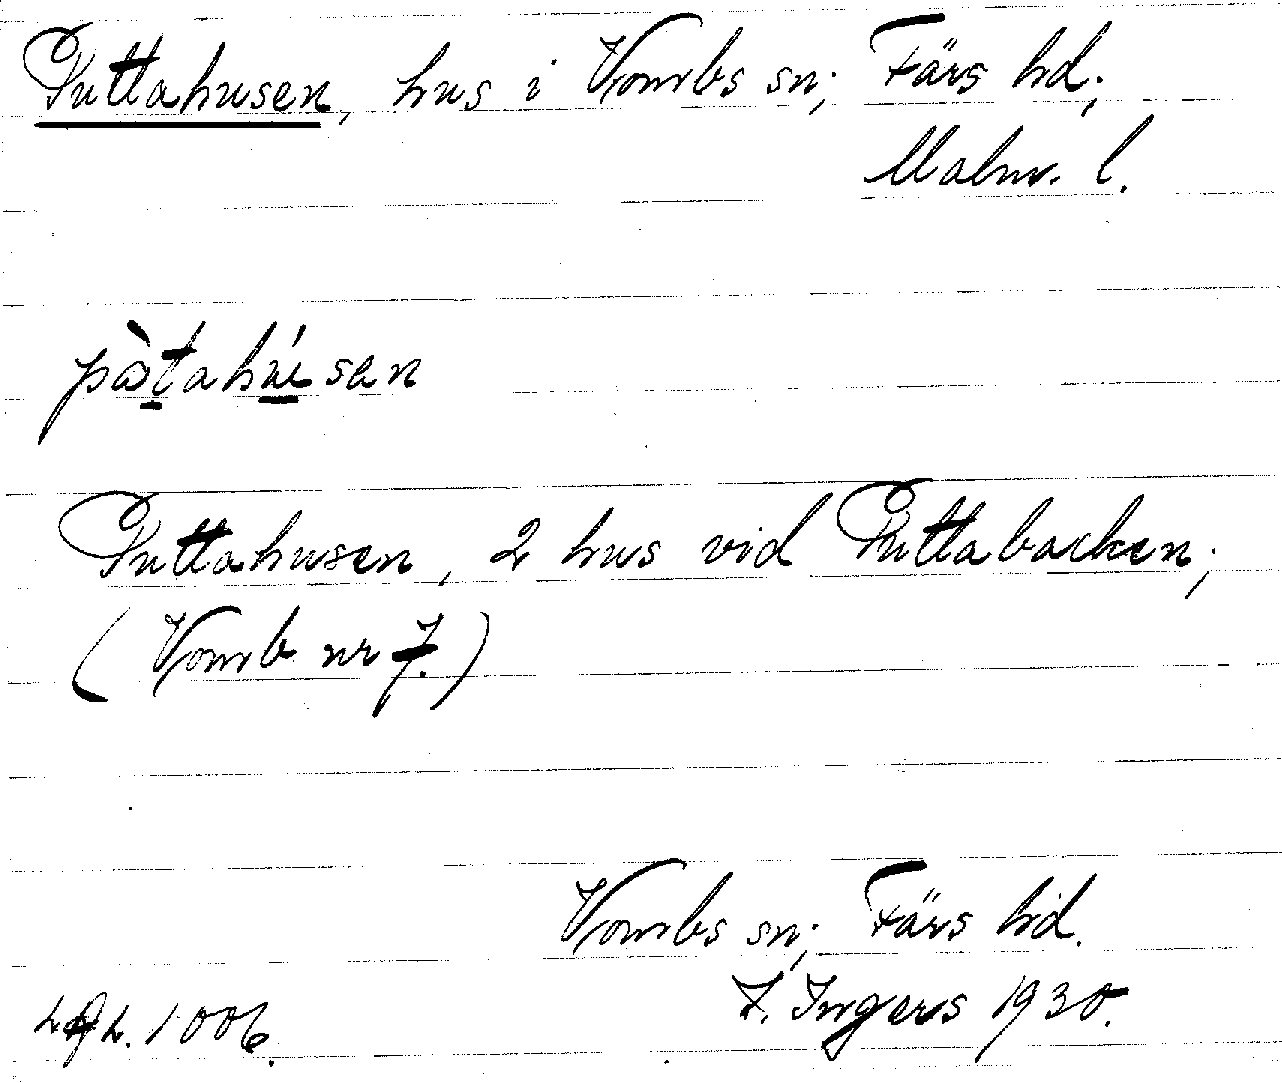 Puttahusen, hus i Vombs sn; Färs hd;
Malm. l.
pàtahúsan
Puttahusen, 2 hus vid Puttabacken;
(Vomb nr 7.)
Vombs sn; Färs hd.
I. Ingers 1930.
1006.